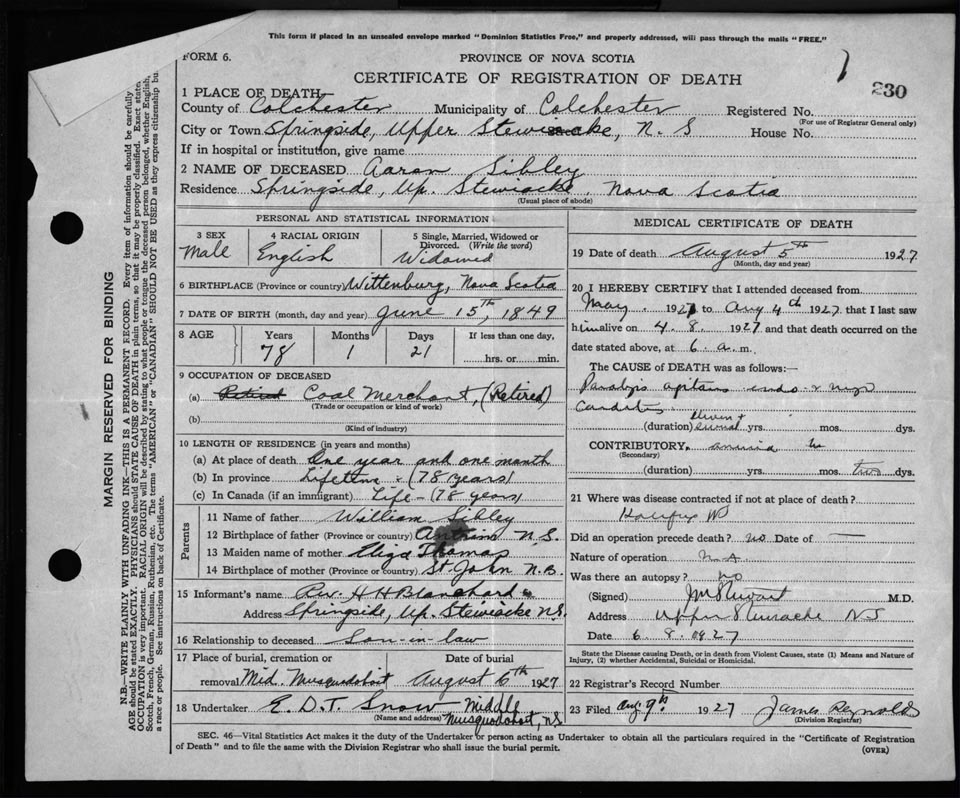 This form if placed in an unsealed envelope marked "Dominion Statistics Free," and properly addressed, will pass through the mails "FREE."
FORM 6.
PROVINCE OF NOVA SCOTIA
CERTIFICATE OF REGISTRATION OF DEATH
230
1 PLACE OF DEATH
County of Colchester Municipality of Colchester Registered No.
(For use of Registrar General only)
City or Town Springside, Upper Stewiacke, N. S House No.
If in hospital or institution, give name
2 NAME OF DECEASED Aaron Sibley
Residence Springside, Up. Stewiacke, Nova Scotia
(Usual place of abode)
PERSONAL AND STATISTICAL INFORMATION
3 SEX 4 RACIAL ORIGIN 5 Single, Married, Widowed or Divorced. (Write the word)
Male English Widowed
6 BIRTHPLACE (Province or country) Wittenburg, Nova Scotia
7 DATE OF BIRTH (month, day and year) June 15th, 1849
8 AGE Years Months Days If less than one day,
78 1 21 hrs. or min.
9 OCCUPATION OF DECEASED
(a) Retired Coal Merchant, (Retired)
(Trade or occupation or kind of work)
(b)
(Kind of industry)
10 LENGTH OF RESIDENCE (in years and months)
(a) At place of death One year and one month
(b) In province Lifetime - (78 years)
(c) In Canada (if an immigrant) Life - (78 years)
Parents
11 Name of father William Sibley
12 Birthplace of father (Province or country) Antrim N.S.
13 Maiden name of mother Eliza Thomas
14 Birthplace of mother (Province or country) St. John N.B.
15 Informant's name Rev. H H Blanchard
Address Springside, Up. Stewiacke N.S.
16 Relationship to deceased Son-in-law
17 Place of burial, cremation or removal Date of burial
Mid. Musquodoboit August 6th 1927
18 Undertaker E. D. T. Snow Middle
(Name and address) Musquodoboit, N.S.
MEDICAL CERTIFICATE OF DEATH
19 Date of death August 5th 1927
(Month, day and year)
20 I HEREBY CERTIFY that I attended deceased from
May 1927 to Aug 4th 1927 that I last saw
him alive on 4. 8. 1927 and that death occurred on the
date stated above, at 6 a.m.
The CAUSE of DEATH was as follows:—
Paralysis agitans endo & myo
Carditis
(duration) yrs. mos. dys.
CONTRIBUTORY,
(Secondary)
(duration) yrs. mos. two dys.
21 Where was disease contracted if not at place of death?
Halifax NS
Did an operation precede death? no Date of —
Nature of operation
Was there an autopsy? no
(Signed) M.D.
Address Upper Stewiacke NS
Date 6. 8. 1927
State the Disease causing Death, or in death from Violent Causes, state (1) Means and Nature of
Injury, (2) whether Accidental, Suicidal or Homicidal.
22 Registrar's Record Number
23 Filed Aug. 9th 1927 James Reynolds
(Division Registrar)
SEC. 46—Vital Statistics Act makes it the duty of the Undertaker or person acting as Undertaker to obtain all the particulars required in the "Certificate of Registration
of Death" and to file the same with the Division Registrar who shall issue the burial permit.
(OVER)
MARGIN RESERVED FOR BINDING
N.B.—WRITE PLAINLY WITH UNFADING INK—THIS IS A PERMANENT RECORD. Every item of information should be carefully
AGE should be stated EXACTLY. PHYSICIANS should STATE CAUSE OF DEATH in plain terms, so that it may be properly classified. Exact state
OCCUPATION is very important. RACIAL ORIGIN will be described by stating to what people or tongue the deceased person belonged, whether English,
Scotch, French, German, Russian, Ruthenian, etc. The terms "AMERICAN" or "CANADIAN" SHOULD NOT BE USED as they express citizenship bu
a race or people. See instructions on back of Certificate.